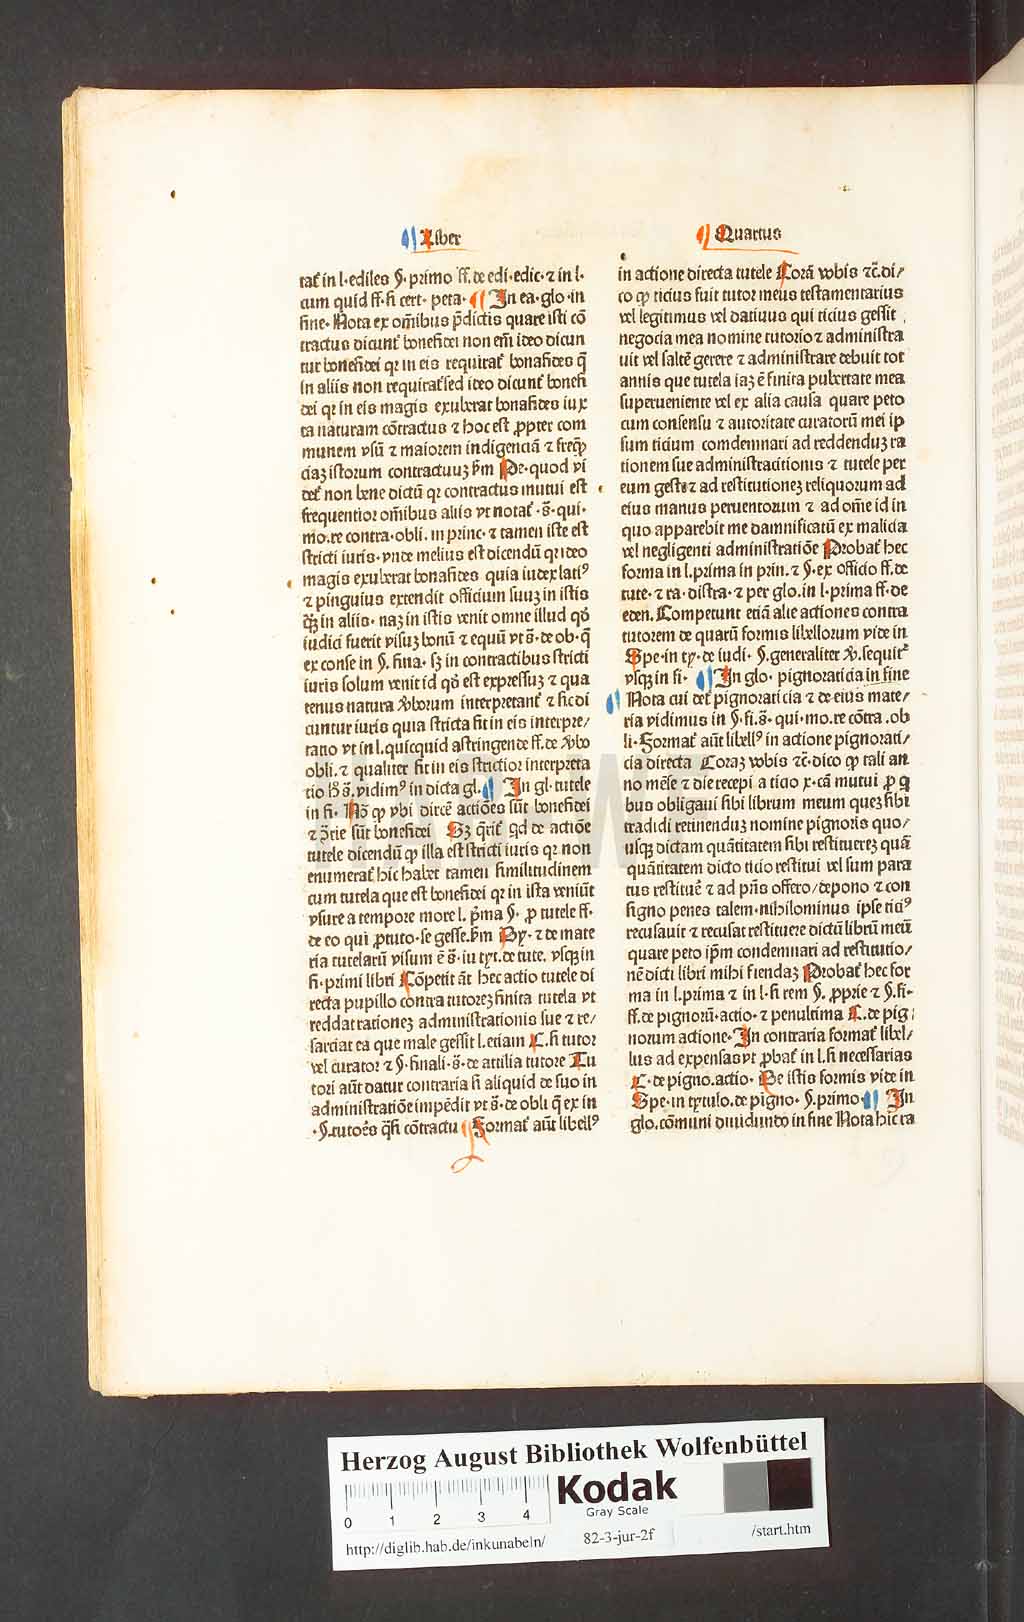 Liber
Quartus
tat᷑ in l. ediles §. primo ff. de edi. edic. ⁊ in l.
cum quid ff. si cert. peta. In ea. glo. in
fine. Nota ex om̄ibus p̄dictis quare isti cō
tractus dicunt᷑ bonefidei non em̄ ideo dicun
tur bonefidei qꝛ in eis requirat᷑ bonafides q̄
in aliis non requirat᷑ sed ideo dicunt᷑ bonefi
dei qꝛ in eis magis exuberat bonafides iux
ta naturam cōtractus ⁊ hoc est ꝓpter com
munem vsū ⁊ maiorem indigenciā ⁊ freq̄
ciaꝫ istorum contractuuꝫ ẜm Pe. quod vi
det᷑ non bene dictū qꝛ contractus mutui est
frequentior om̄ibus aliis vt notat᷑. s̄. qui.
mo. re contra. obli. in princ. ⁊ tamen iste est
stricti iuris. vnde melius est dicendū qꝛ ideo
magis exuberat bonafides quia iudex latiꝰ
⁊ pinguius extendit officium suuꝫ in istis
q̄ꝫ in aliis. naꝫ in istis venit omne illud qd̄
iudici fuerit visuꝫ bonū ⁊ equū vt s̄. de ob. q̄
ex conse in §. fina. sꝫ in contractibus stricti
iuris solum venit id qd̄ est expressuꝫ ⁊ qua
tenus natura v̓borum interpretant᷑ ⁊ sic di
cuntur iuris quia stricta fit in eis interpre/
tatio vt in l. quicquid astringende ff. de v̓bo
obli. ⁊ qualiter fit in eis strictior interpreta
tio h̓ s̄. vidimꝰ in dicta gl. In gl. tutele
in fi. Nō ꝙ vbi directe actiōes sūt bonefidei
⁊ ꝯ̄rie sūt bonefidei Sꝫ q̄rit᷑ qd de actiōe
tutele dicendū ꝙ illa est stricti iuris qꝛ non
enumerat᷑ hic habet tamen similitudinem
cum tutela que est bonefidei qꝛ in ista veniūt
vsure a tempore more l. p̄ma §. ꝓ tutele ff.
de eo qui ꝓtuto. se gesse. ẜm Py. ⁊ de mate
ria tutelarū visum ē s̄. iu tyt. de tute. vsqꝫ in
fi. primi libri Cōpetit āt hec actio tutele di
recta pupillo contra tutoreꝫ finita tutela vt
reddat rationeꝫ administrationis sue ⁊ re/
sarciat ea que male gessit l. etiam C. si tutor
vel curator ⁊ §. finali. s̄. de attilia tutore Tu
tori aūt datur contraria si aliquid de suo in
administratiōe impēdit vt s̄. de obli q̄ ex in
. §. tutores q̄si cōtractu Format᷑ aūt libellꝰ
in actione directa tutele Corā vobis ⁊c̄. di/
co ꝙ ticius fuit tutor meus testamentarius
vel legitimus vel datiuus qui ticius gessit
negocia mea nomine tutorio ⁊ administra
uit vel saltē gerere ⁊ administrare debuit tot
annis que tutela iaꝫ ē finita pubertate mea
superueniente vel ex alia causa quare peto
cum consensu ⁊ autoritate curatorū mei ip
sum ticium comdemnari ad reddenduꝫ ra
tionem sue administracitionis ⁊ tutele per
eum geste ⁊ ad restitutioneꝫ reliquorum ad
eius manus peruentorum ⁊ ad om̄e id in
quo apparebit me damnificatū ex malicia
vel negligenti administratiōe Probat᷑ hec
forma in l. prima in prin. ⁊ §. ex officio ff. de
tute. ⁊ ra. distra. ⁊ per glo. in l. prima ff. de
eoden. Competunt etiā alie actiones contra
tutorem de quarū formis libellorum vide in
Spe. in ty. de iudi. §. generaliter v̓. sequit᷑
vsqꝫ in fi. In glo. pignoraticia in fine
Nota cui det᷑ pignoraticia ⁊ de eius mate/
ria vidimus in §. fi. s̄. qui. mo. re cōtra. ob
li. Format᷑ aūt libellꝰ in actione pignorati/
cia directa Coraꝫ vobis ⁊c̄. dico ꝙ tali an
no mēse ⁊ die recepi a ticio x. cā mutui ꝓ q
bus obligaui sibi librum meum queꝫ sibi
tradidi retinenduꝫ nomine pignoris quo/
usqꝫ dictam quātitatem sibi restituereꝫ quā
quātitatem dicto ticio restitui vel sum para
tus restituē ⁊ ad p̄ns offero / depono ⁊ con
signo penes talem. nihilominus ipse ticiꝰ
recusauit ⁊ recusat restituere dictū librū meū
quare peto ip̄m condemnari ad restitutio/
nē dicti libri mihi fiendaꝫ Probat᷑ hec for
ma in l. prima ⁊ in l. si rem §. ꝓprie ⁊ §. fi.
ff. de pignorū. actio. ⁊ penultima C. de pig
norum actione. In contraria format᷑ libel/
lus ad expensas vt ꝓbat᷑ in l. si necessarias
C. de pigno. actio. De istis formis vide in
Spe. in tytulo. de pigno. §. primo. In
glo. cōmuni diuidundo in fine Nota hic ra
Herzog August Bibliothek Wolfenbüttel
Kodak
Gray Scale
0 1 2 3 4
http://diglib.hab.de/inkunabeln/ 82-3-jur-2f /start.htm